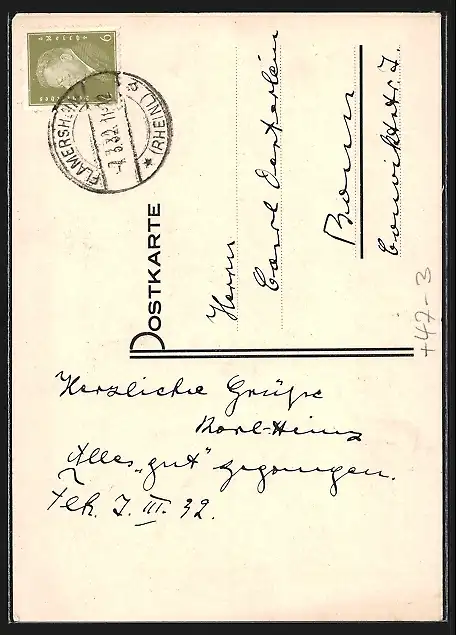 POSTKARTE
Herrn
Carl Oesterlein
Bonn
Conviktstr. 7.
FLAMERSHEIM (RHEINL)
7.3.32.11-12
6
+47-3
Herzliche Grüße
Karl-Heinz
Alles „gut" gegangen.
Flh. 7. III. 32.